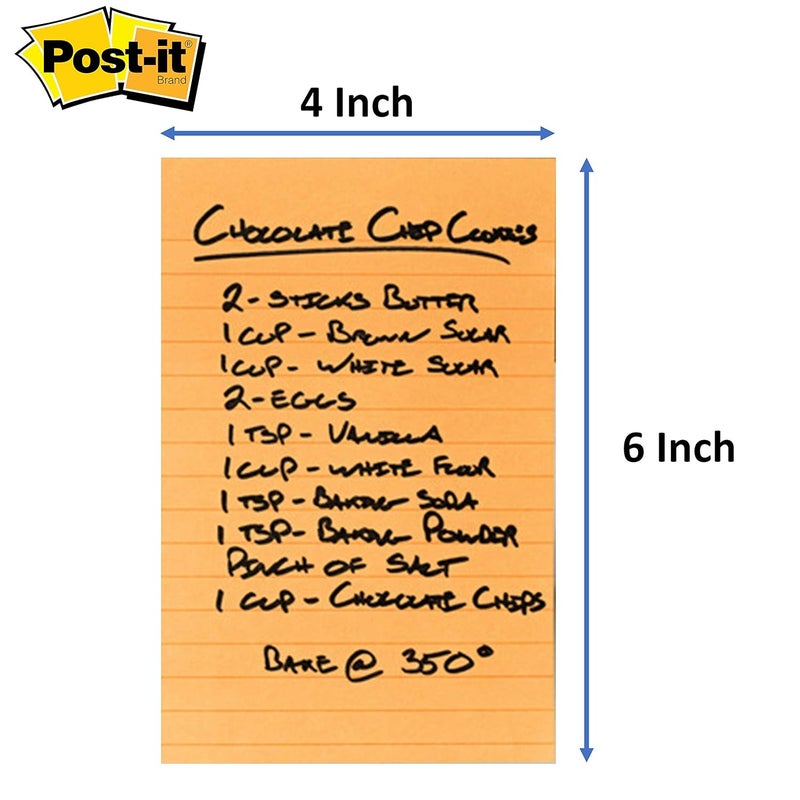 Post-it®
Brand
4 Inch
CHOCOLATE CHIP COOKIES
2-STICKS BUTTER
1 CUP - BROWN SUGAR
1 CUP - WHITE SUGAR
2-EGGS
1 TSP - VANILLA
1 CUP - WHITE FLOUR
1 TSP - BAKING SODA
1 TSP - BAKING POWDER
PINCH OF SALT
1 CUP - CHOCOLATE CHIPS
BAKE @ 350°
6 Inch